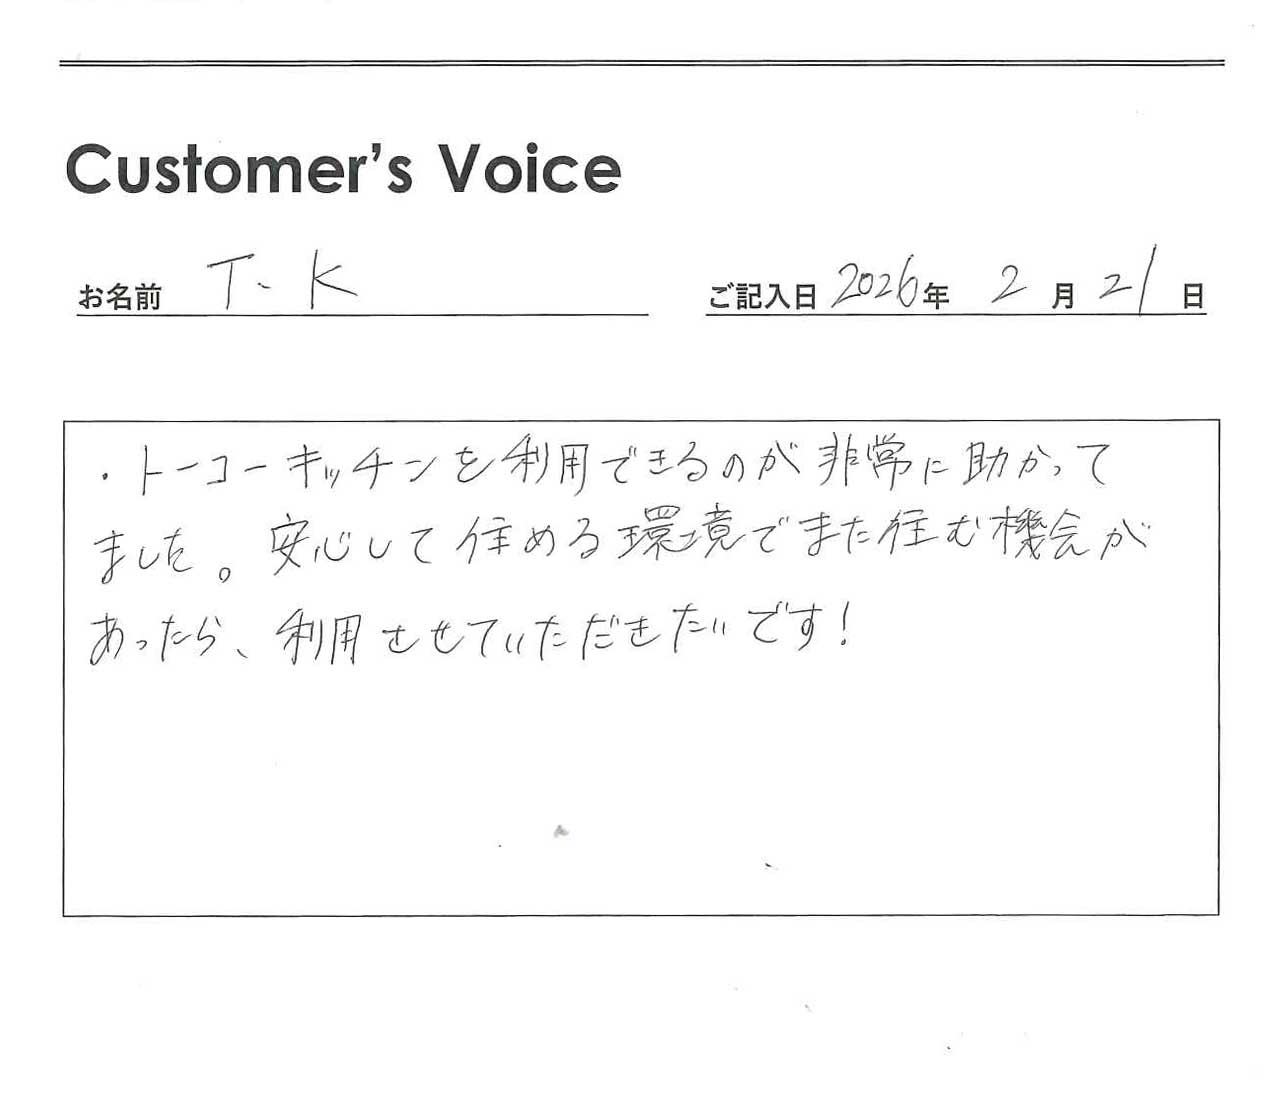 Customer's Voice
お名前 T.K
ご記入日 2026年 2月 21日
・トーコーキッチンを利用できるのが非常に助かって
ました。安心して住める環境でまた住む機会が
あったら、利用させていただきたいです!